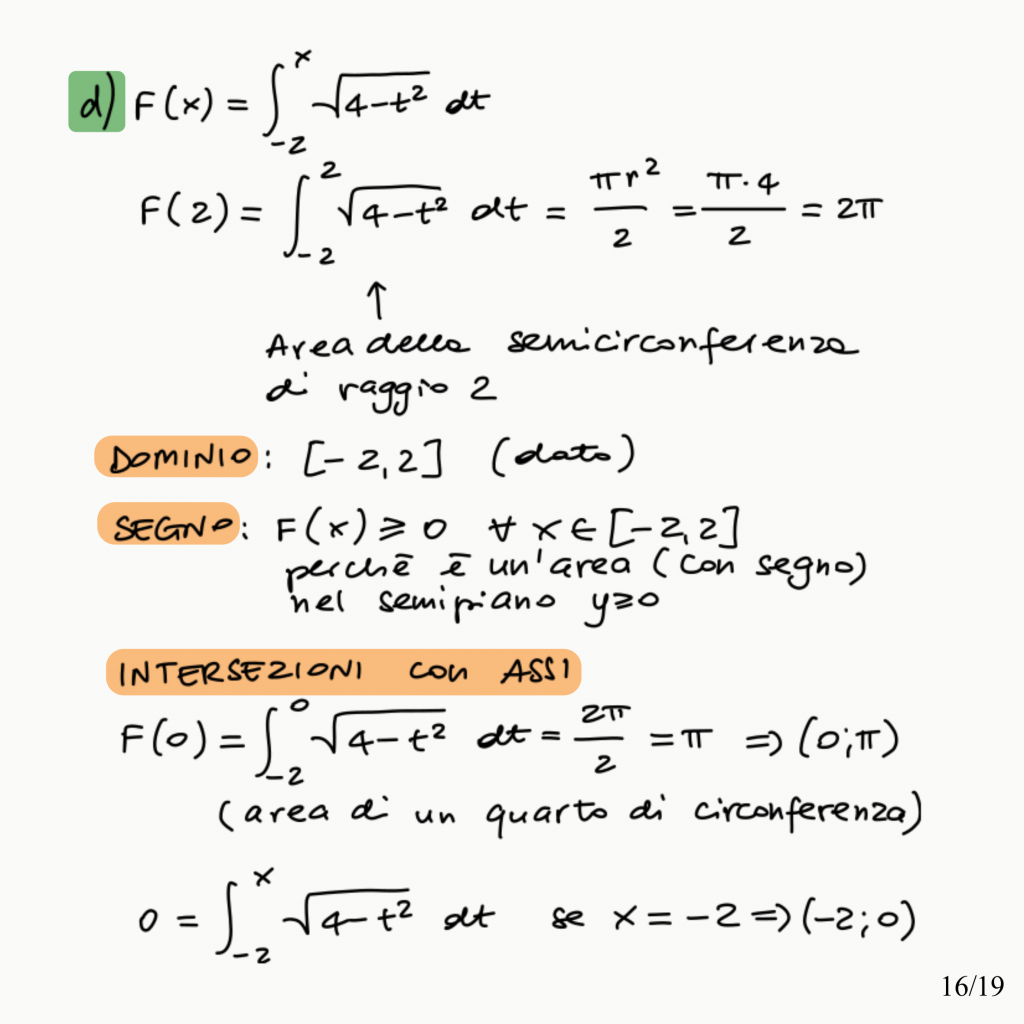 d) F(x) = ∫_{-2}^{x} √(4-t²) dt
F(2) = ∫_{-2}^{2} √(4-t²) dt = πr²/2 = π·4/2 = 2π
↑
Area della semicirconferenza
di raggio 2
DOMINIO: [-2,2] (dato)
SEGNO: F(x) ⩾ 0 ∀ x ∈ [-2,2]
perchē ē un'area (con segno)
nel semipiano y⩾0
INTERSEZIONI con ASSI
F(0) = ∫_{-2}^{0} √(4-t²) dt = 2π/2 = π ⇒ (0;π)
(area di un quarto di circonferenza)
0 = ∫_{-2}^{x} √(4-t²) dt se x = -2 ⇒ (-2;0)
16/19